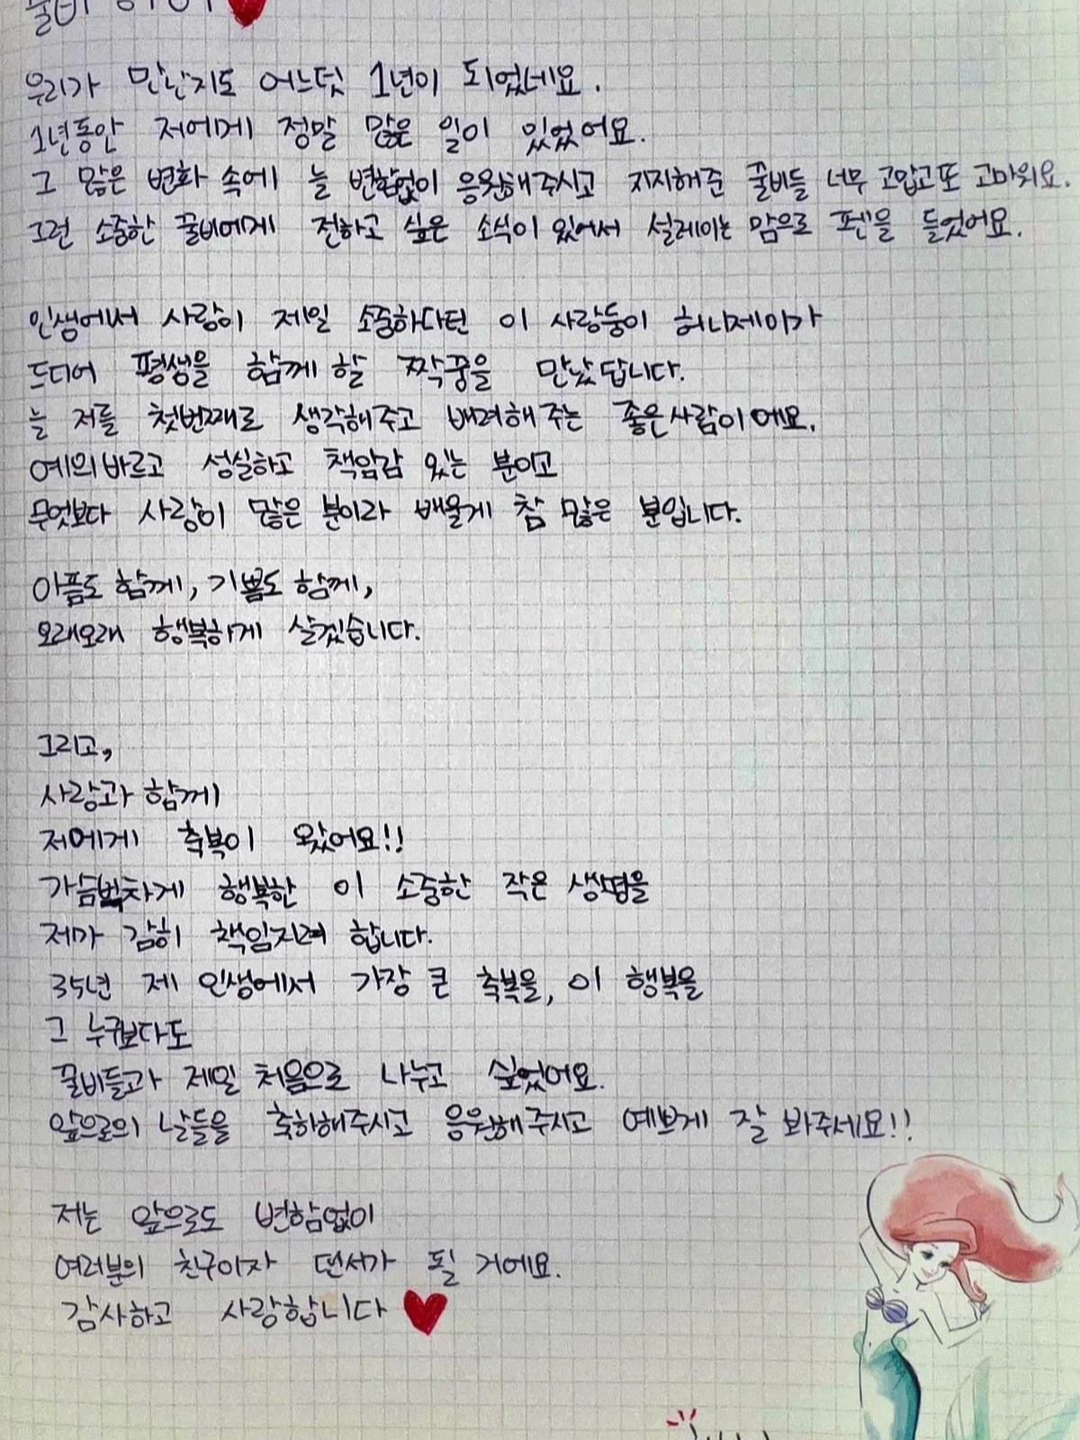 우리가 만난지도 어느덧 1년이 되었네요.
1년동안 저에게 정말 많은 일이 있었어요.
그 많은 변화 속에 늘 변함없이 응원해주시고 지지해준 꿀비들 너무 고맙고 또 고마워요.
그런 소중한 꿀비에게 전하고 싶은 소식이 있어서 설레이는 맘으로 펜을 들었어요.
인생에서 사랑이 제일 소중하다던 이 사랑둥이 허니제이가
드디어 평생을 함께 할 짝꿍을 만났답니다.
늘 저를 첫번째로 생각해주고 배려해주는 좋은 사람이에요.
예의바르고 성실하고 책임감 있는 분이고
무엇보다 사랑이 많은 분이라 배울게 참 많은 분입니다.
아픔도 함께, 기쁨도 함께,
오래오래 행복하게 살겠습니다.
그리고,
사랑과 함께
저에게 축복이 왔어요!!
가슴벅차게 행복한 이 소중한 작은 생명을
제가 감히 책임지려 합니다.
35년 제 인생에서 가장 큰 축복을, 이 행복을
그 누구보다도
꿀비들과 제일 처음으로 나누고 싶었어요.
앞으로의 날들을 축하해주시고 응원해주시고 예쁘게 잘 봐주세요!!
저는 앞으로도 변함없이
여러분의 친구이자 댄서가 될 거에요.
감사하고 사랑합니다